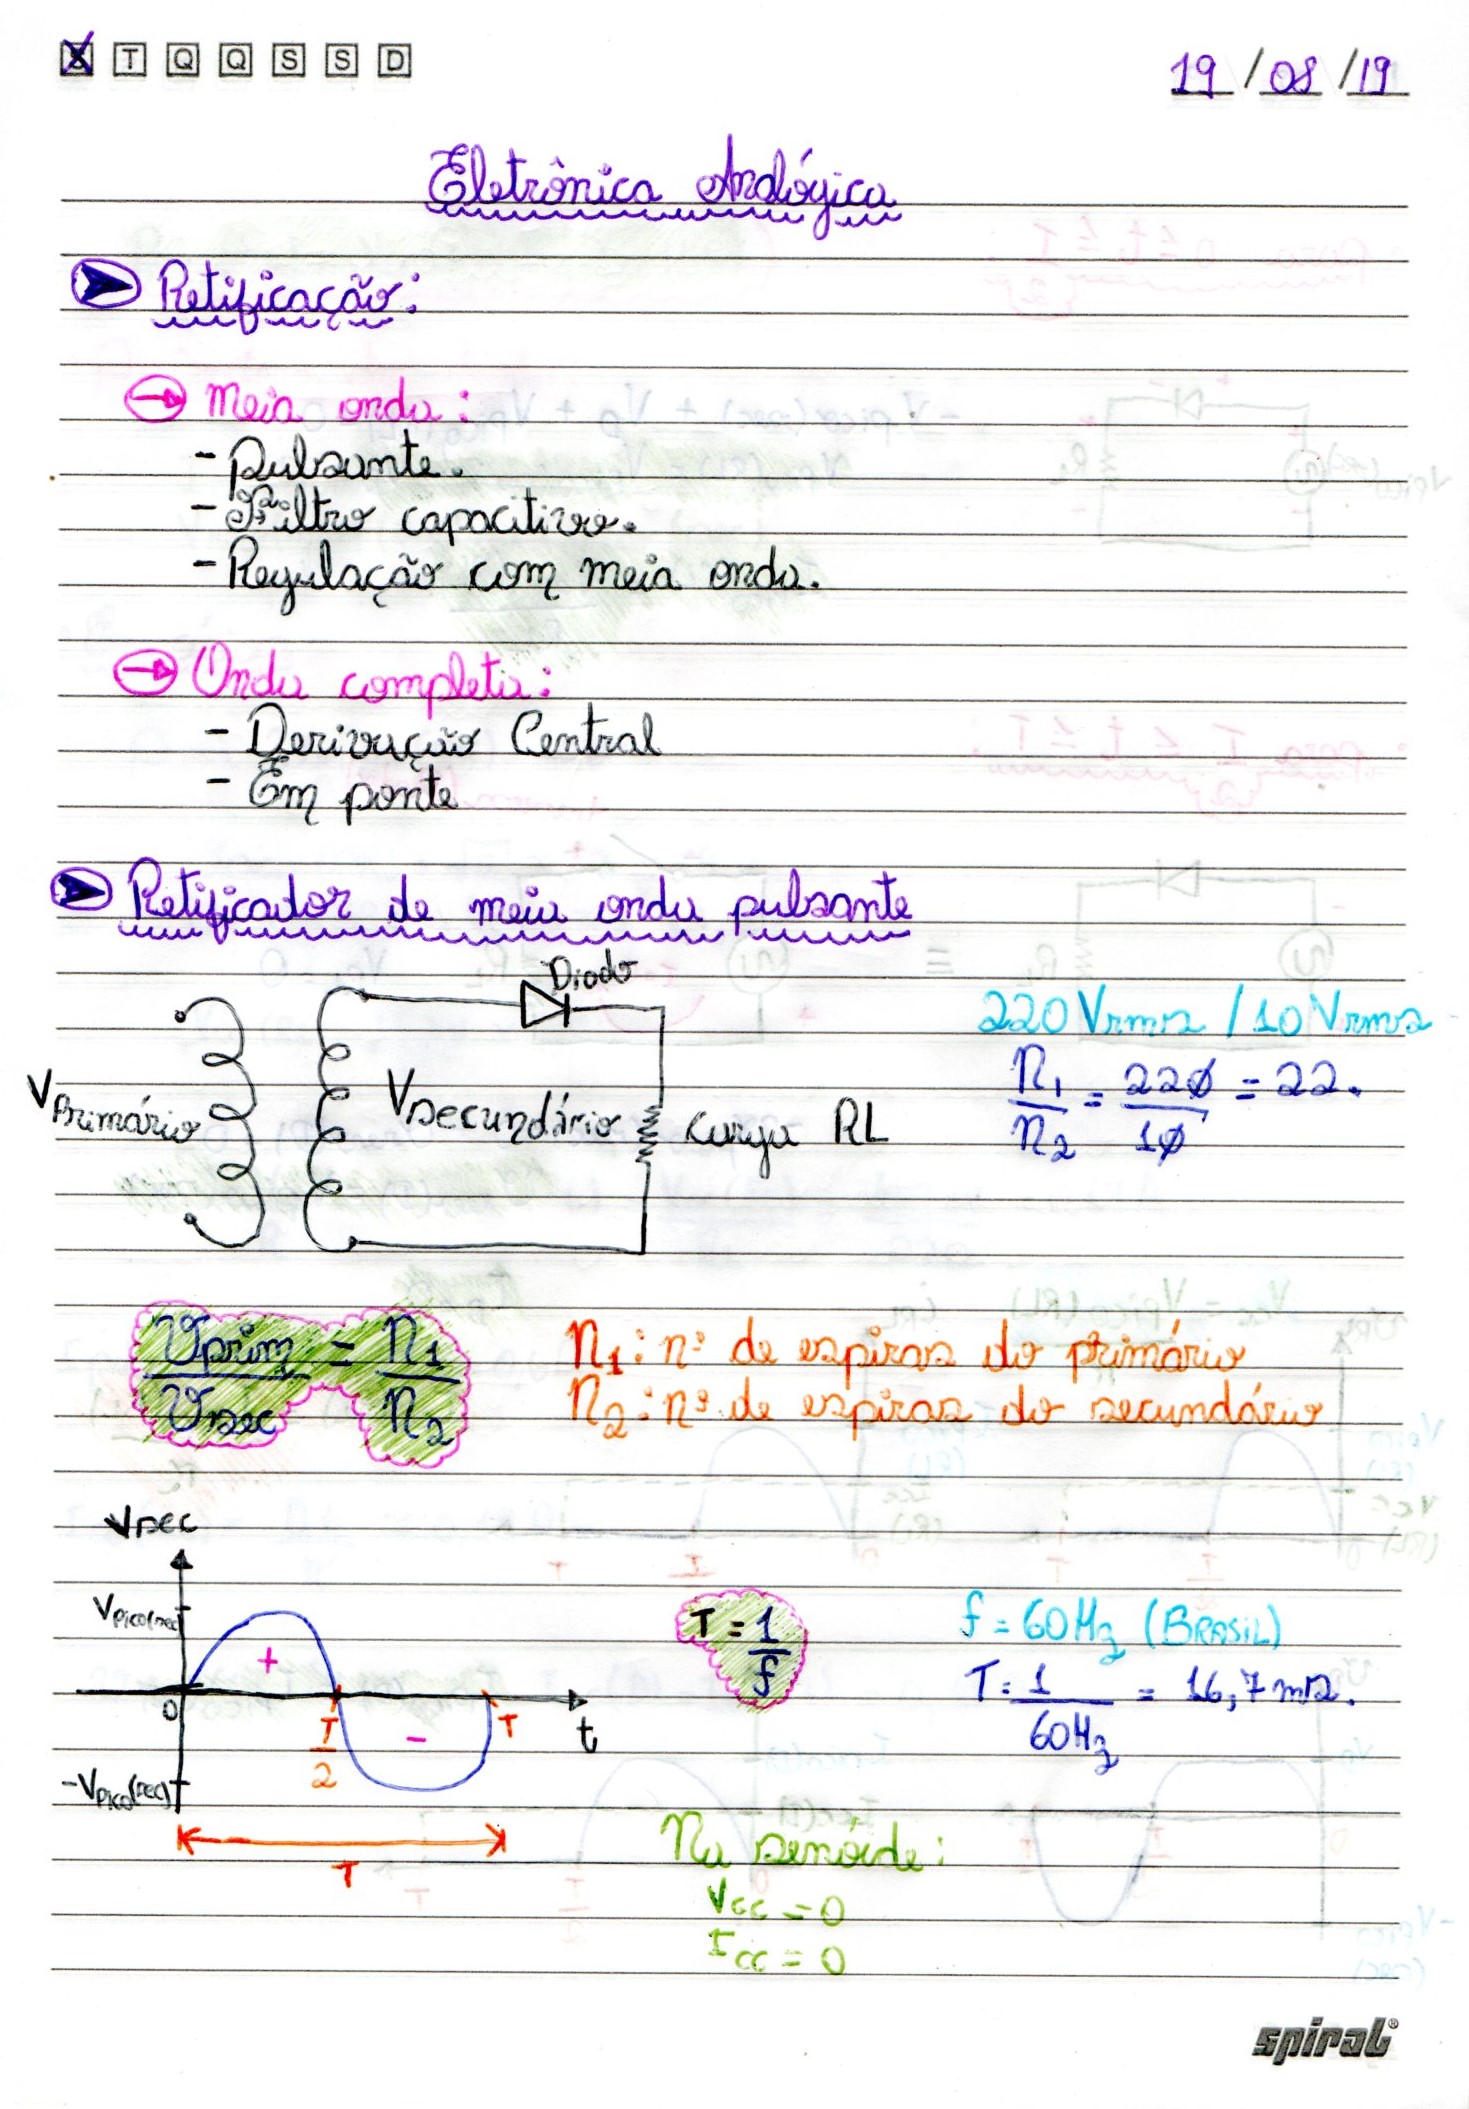 S T Q Q S S D
19/08/19
Eletrônica Analógica
Retificação:
Meia onda:
- Pulsante.
- Filtro capacitivo.
- Regulação com meia onda.
Onda completa:
- Derivação Central
- Em ponte
Retificador de meia onda pulsante
Diodo
VPrimário
Vsecundário
carga RL
220 Vrms / 10 Vrms
n1/n2 = 220/10 = 22.
Vprim/Vsec = n1/n2
n1: nº de espiras do primário
n2: nº de espiras do secundário
Vsec
Vpico(sec)
+
0
T/2
-
T
t
-Vpico(sec)
T
T = 1/f
f = 60Hz (BRASIL)
T = 1/60Hz = 16,7ms.
Na senóide:
Vcc = 0
Icc = 0
spiral®